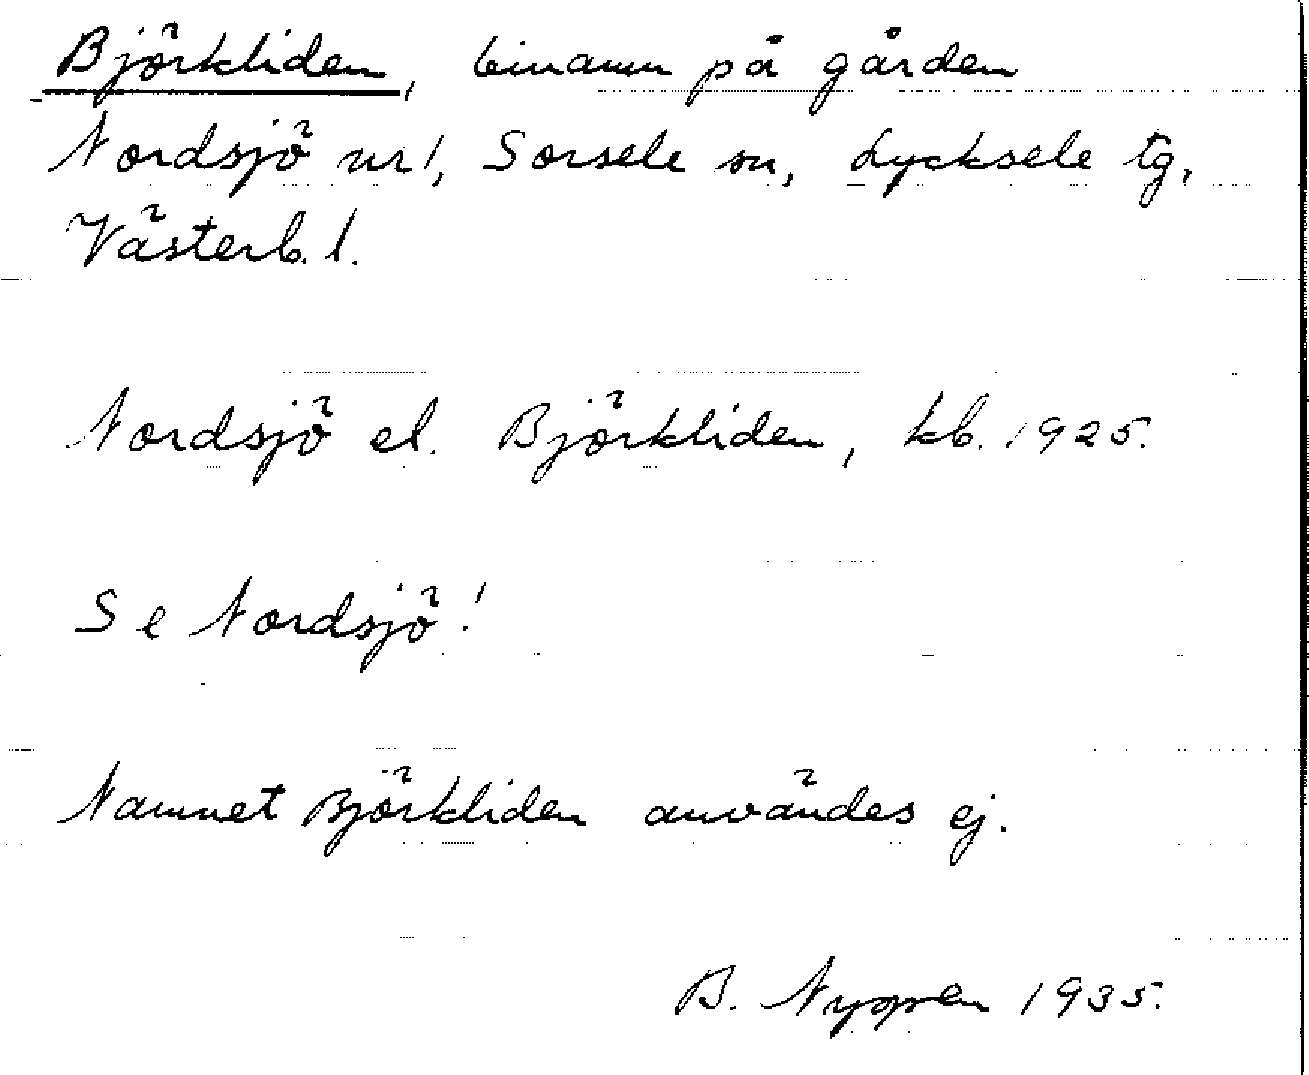 Björkliden, binamn på gården
Nordsjö nr 1, Sorsele sn, Lycksele tg,
Västerb. l.
Nordsjö el. Björkliden, kb. 1925.
Se Nordsjö!
Namnet Björkliden användes ej.
B. 1935.